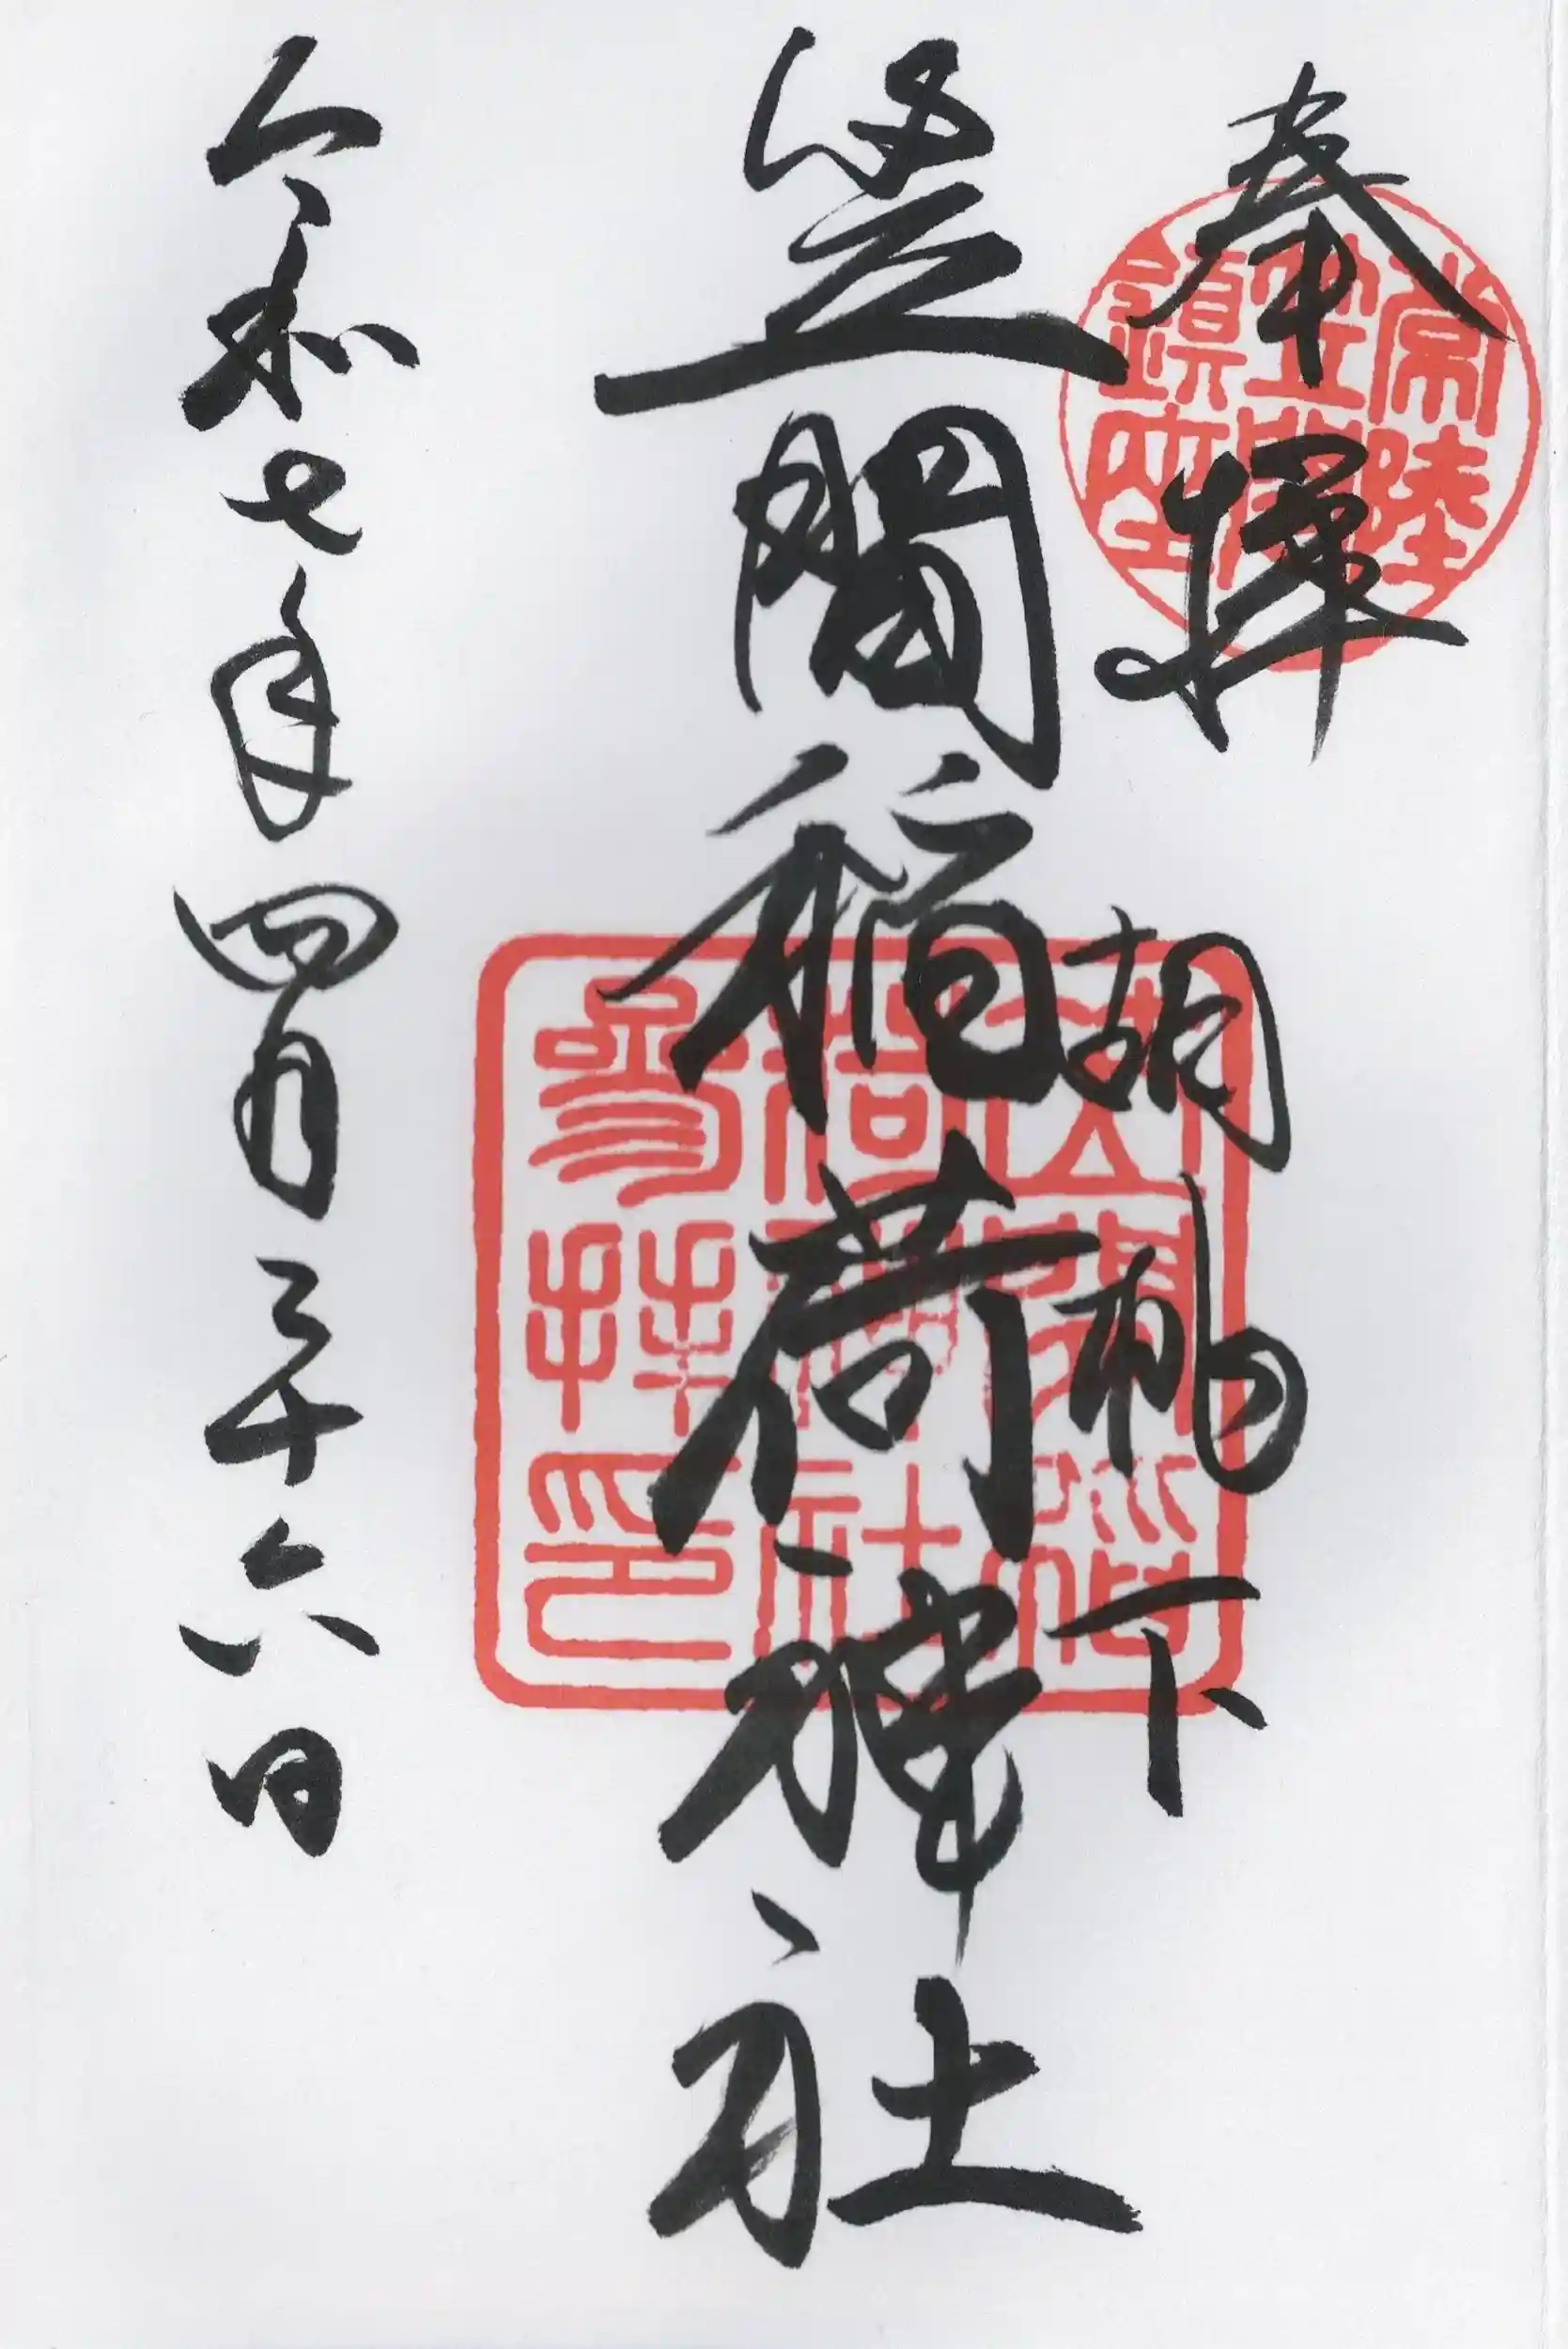 奉拝
胡桃下
笠間稲荷神社
令和七年四月二十六日
常陸
笠間
鎮座
稲荷神社
参拝印